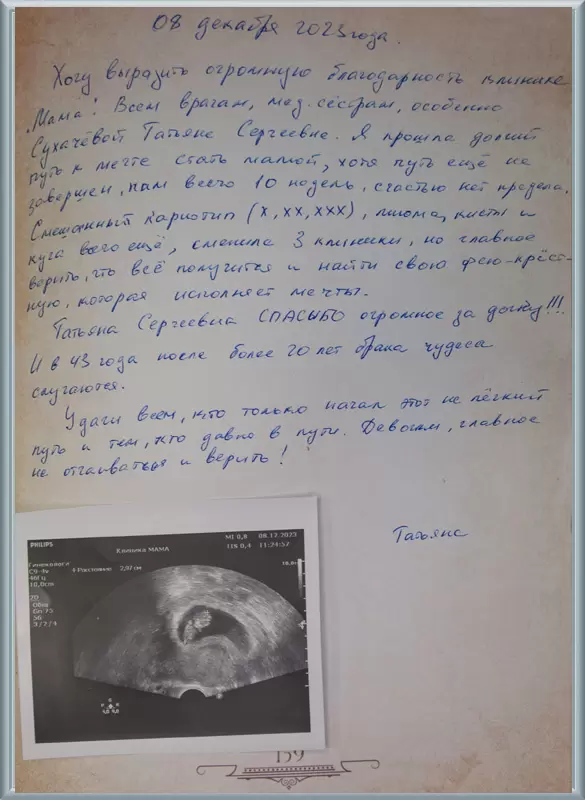 08 декабря 2023 года.
Хочу выразить огромную благодарность клинике
„Мама"! Всем врачам, мед. сёстрам, особенно
Сухачёвой Татьяне Сергеевне. Я прошла долгий
путь к мечте стать мамой, хотя путь ещё не
завершен, нам всего 10 недель, счастью нет предела.
Смешанный кариотип (х, хх, ххх), миома, кисты и
куча всего ещё, сменила 3 клиники, но главное
верить, что всё получится и найти свою фею-крёст-
ную, которая исполняет мечты.
Татьяна Сергеевна СПАСИБО огромное за дочку!!!
И в 43 года после более 20 лет брака чудеса
случаются.
Удачи всем, кто только начал этот не лёгкий
путь и тем, кто давно в пути. Девочки, главное
не отчаиваться и верить!
Татьяна
PHILIPS
Клиника МАМА
MI 0,8 08.12.2023
TIS 0,4 11:24:57
Гинекология
C9-4v
46Гц
10,0cm
+ Расстояние 2,97 cm
2D
Общ
Gn 75
56
3/2/4
159